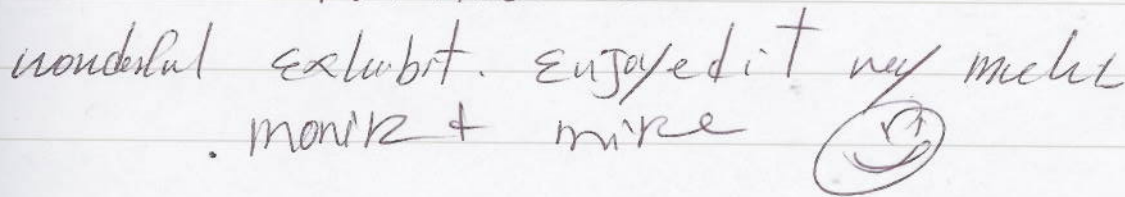 wonderful exhibit. Enjoyed it very much
. Monik + mike